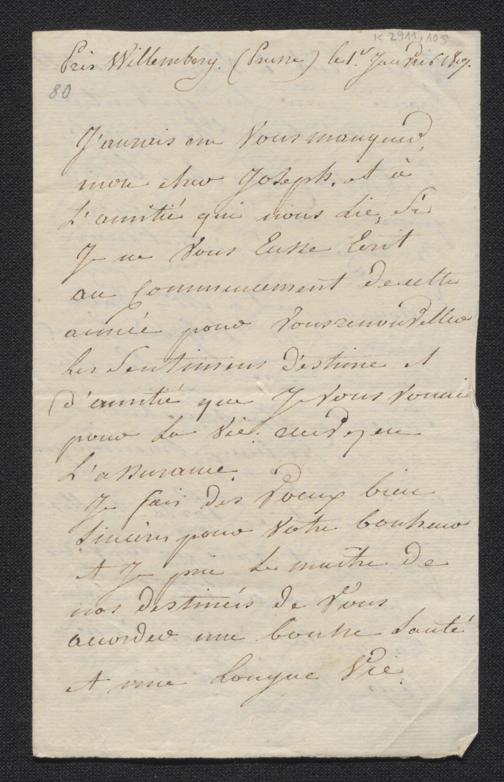 K 2911, 105
Près Willemberg. (Prusse) le 1er Janvier 1807.
80
J'aurais cru Vous manquer,
mon cher Joseph, et à
L'amitié qui nous Lie, Si
Je ne Vous Eusse Ecrit
au Commencement de cette
année pour Vous renouveller
Les Sentimens d'Estime et
d'amitié que Je Vous Vouai
pour La Vie.
L'assurance.
Je fais des Voeux bien
Sincers pour Votre bonheur
Et Je prie Le maitre de
nos destinées de Vous
accorder une bonne Santé
Et une Longue Vie.